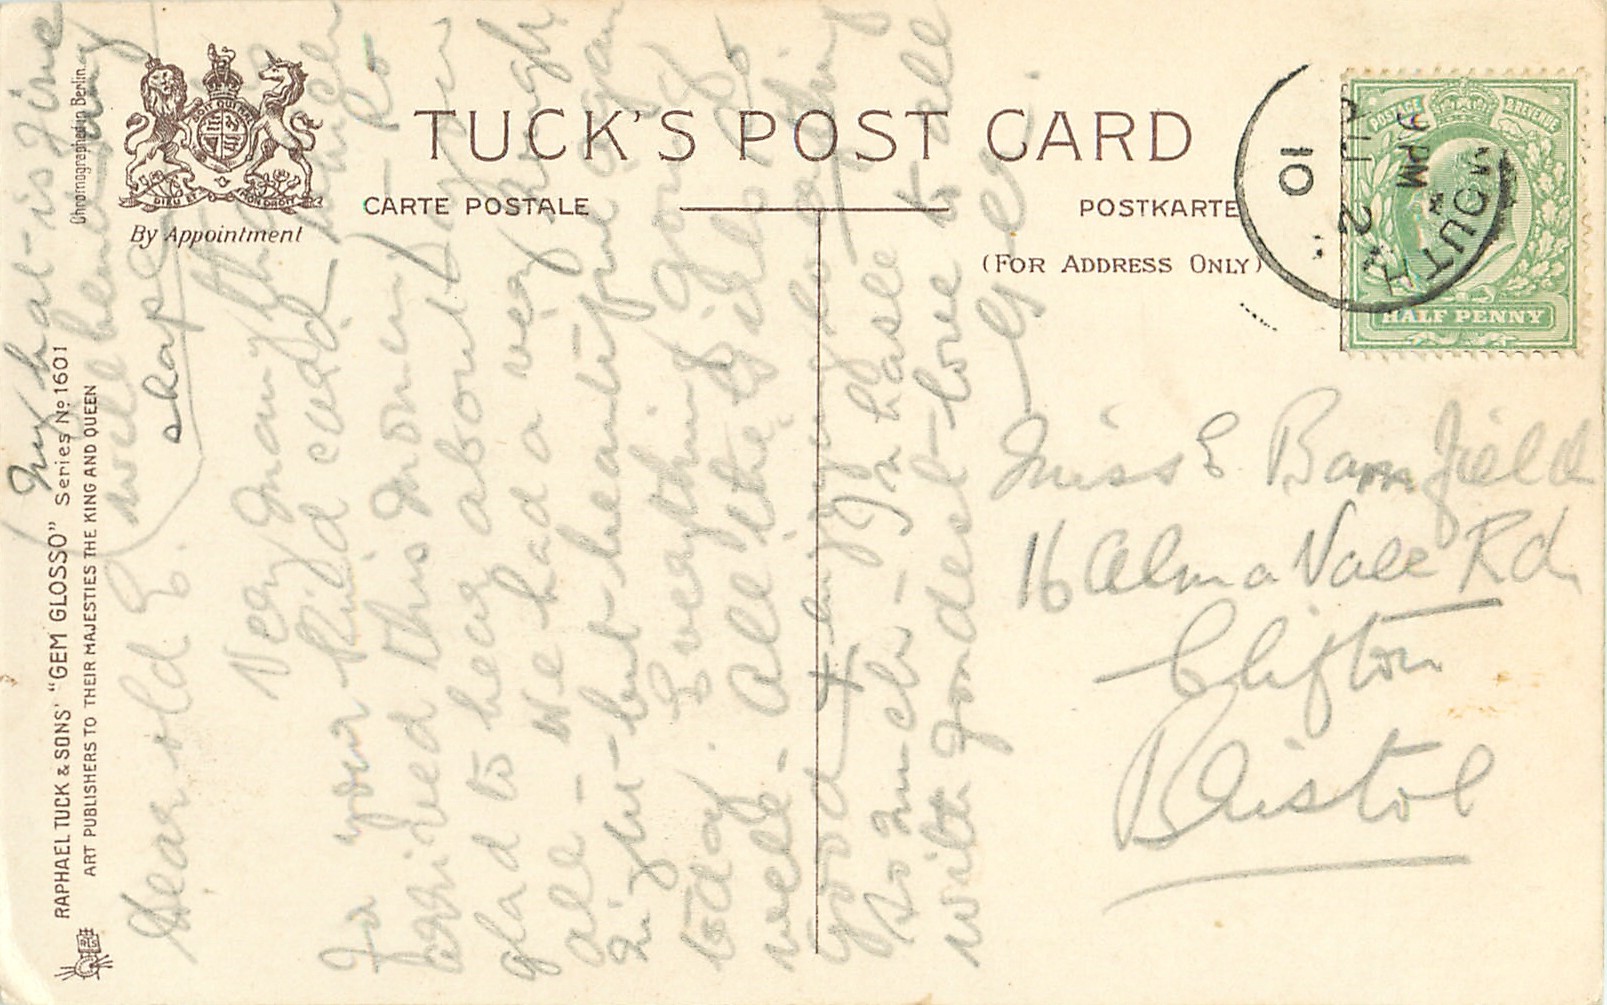 TUCK'S POST CARD
CARTE POSTALE
POSTKARTE
(FOR ADDRESS ONLY)
By Appointment
DIEU ET MON DROIT
Chromographed in Berlin.
RAPHAEL TUCK & SONS' "GEM GLOSSO" Series No 1601
ART PUBLISHERS TO THEIR MAJESTIES THE KING AND QUEEN
POSTAGE & REVENUE
HALF PENNY
9 PM
2
10
Miss E Bamfield
16 Alma Vale Rd
Clifton
Bristol
Dear old E.
Very many thanks
for your kind card
arrived this moment so
glad to hear about you
all - We had a very rough
night - but beautiful again
today. Everything going
well. All the girls so
good & enjoying
so much - In haste
with fondest love to all
My hat is fine
will
shape